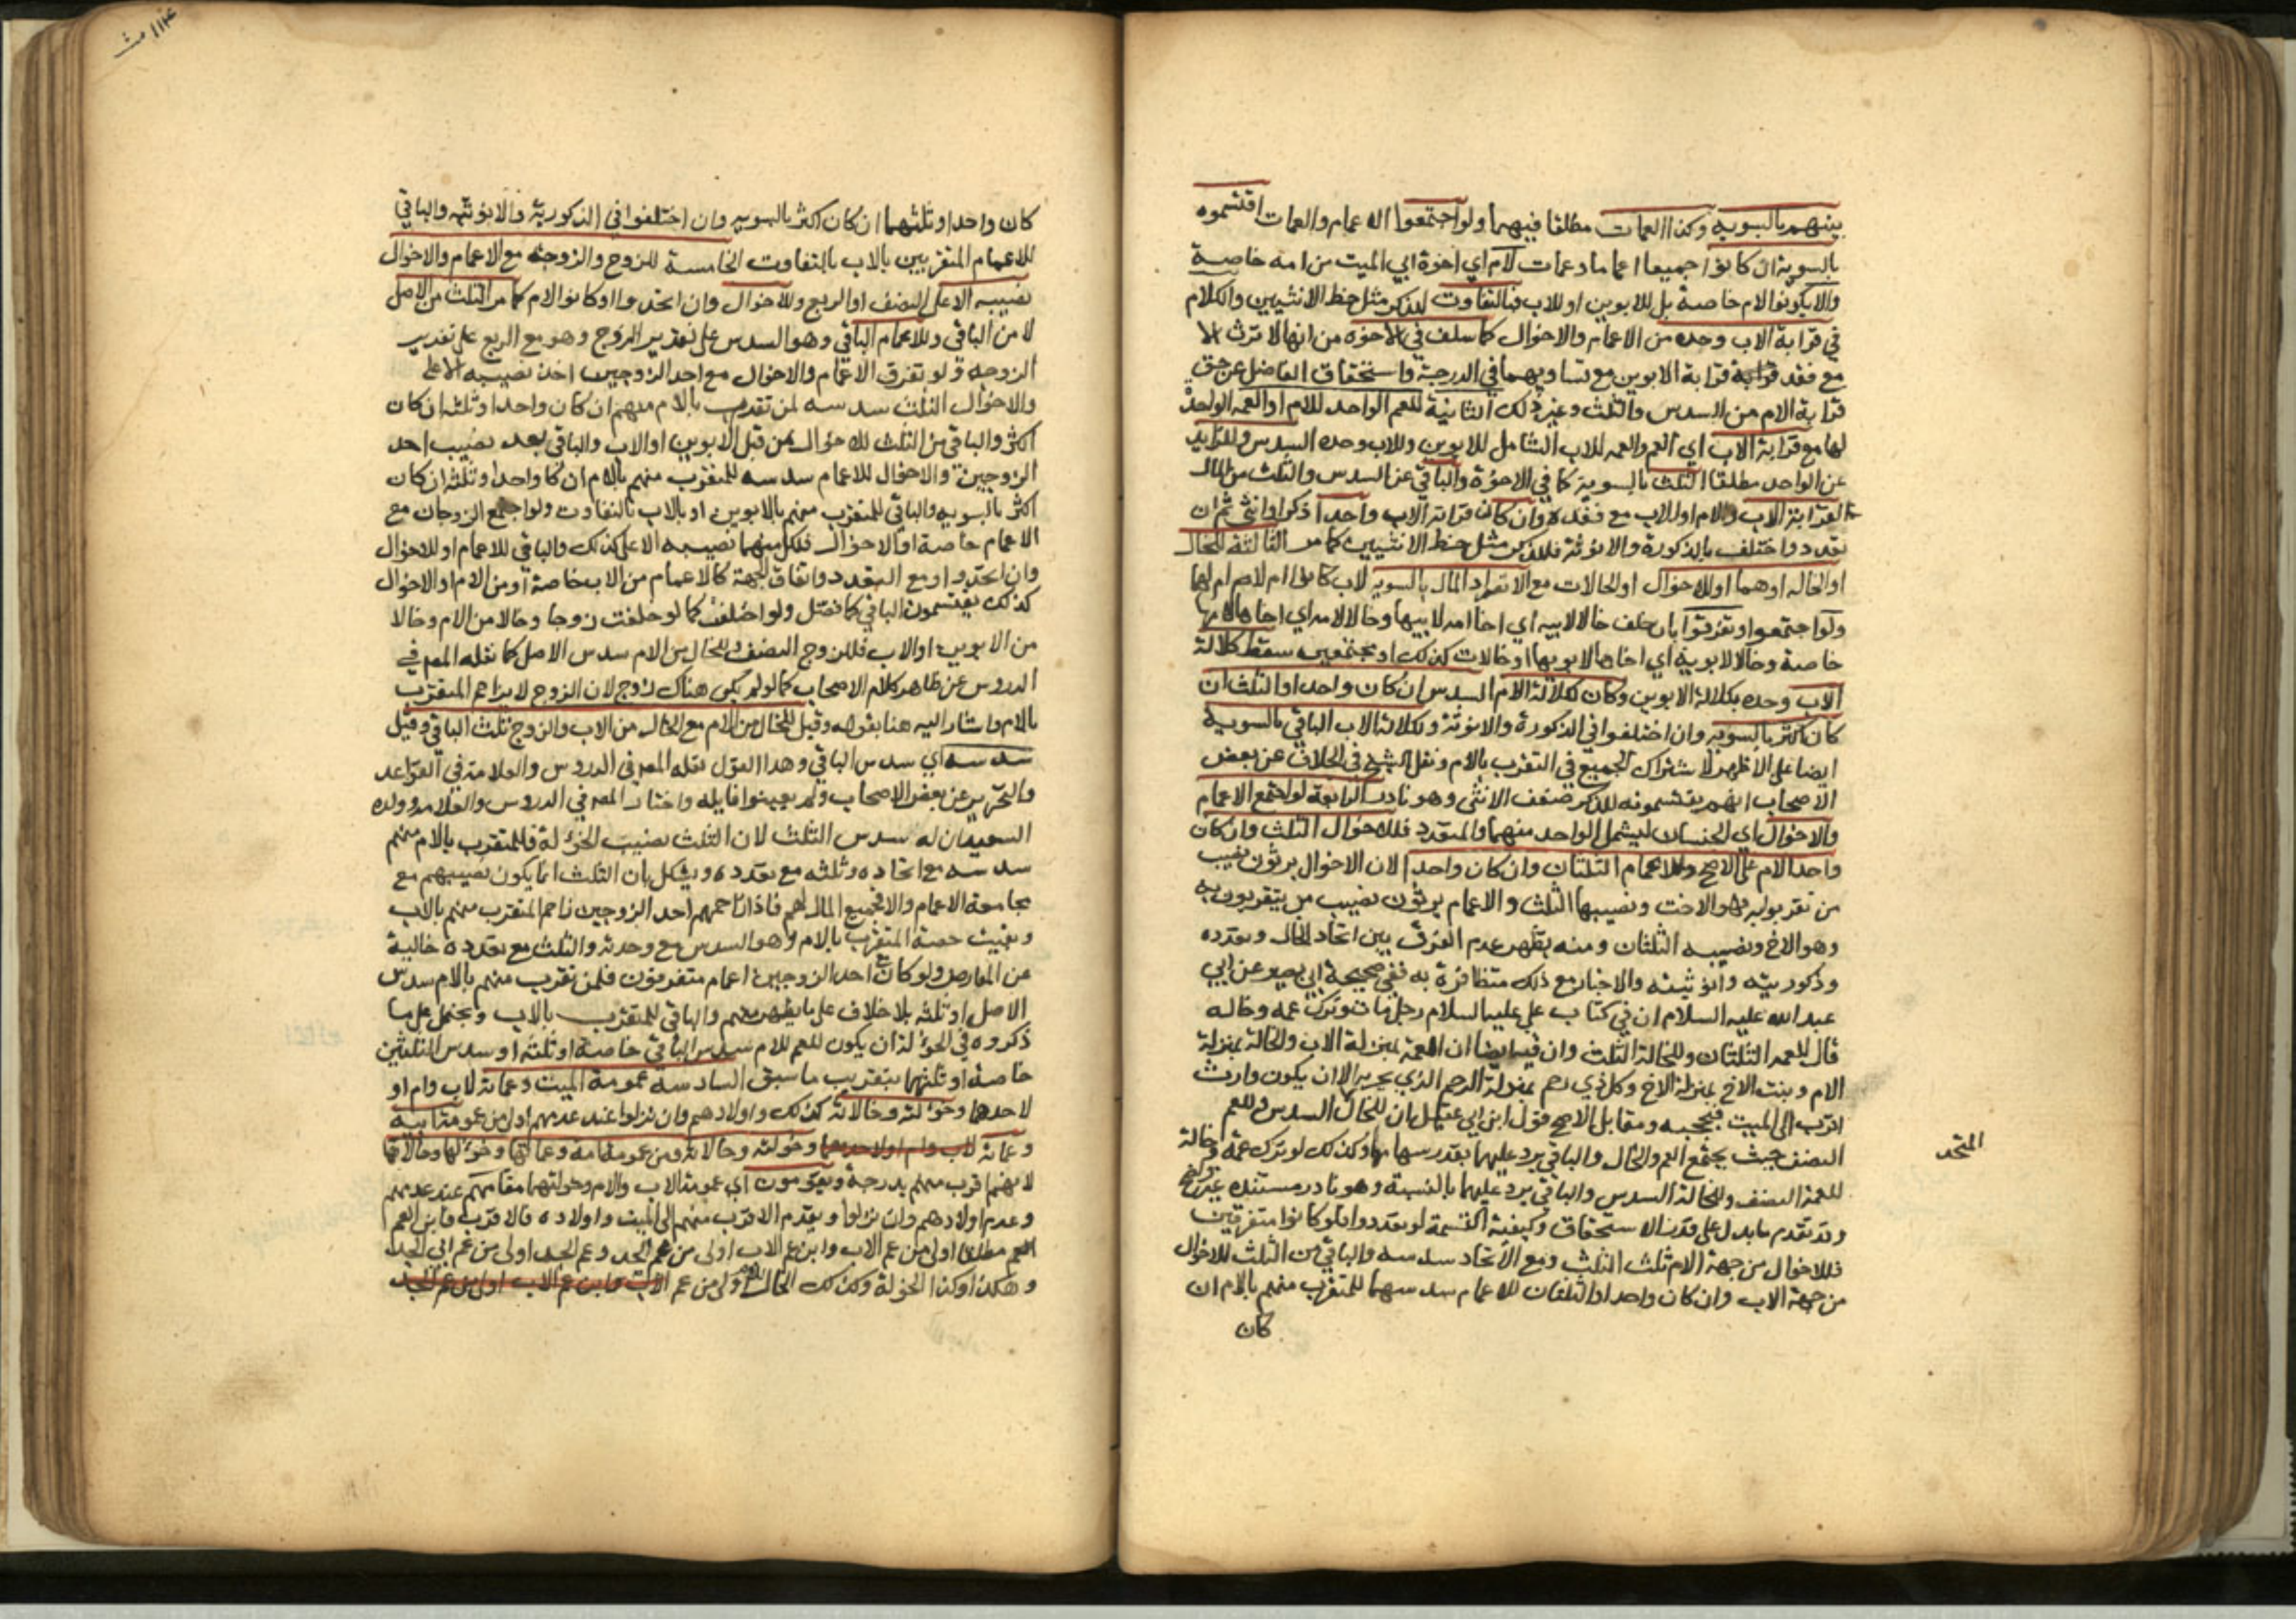 بينهم بالسوية وكذا العمات مطلقا فيهما ولو اجتمعوا الاعمام والعمات اقتسموه
بالسوية ان كانوا جميعا اعماما وعمات لام اي اخوة ابي الميت من امه خاصة
والا يكونوا لام خاصة بل للابوين او للاب فبالتفاوت للذكر مثل حظ الانثيين والكلام
في قرابة الاب وحده من الاعمام والاخوال كما سلف في الاخوة من انها لا ترث الا
مع فقد قرابة الابوين مع تساويهما في الدرجة واستحقاق الفاضل عن حق
قرابة الام من السدس والثلث وغير ذلك الثانية للعم الواحد للام او العمة الواحدة
لها مع قرابة الاب اي العم والعمة للاب الشامل للابوين وللاب وحده السدس وللزايد
عن الواحد مطلقا الثلث بالسوية كما في الاخوة والباقي عن السدس والثلث من المال
لقرابة الاب والام او للاب مع فقده وان كان قرابة الاب واحدا ذكرا او انثى ثم ان
تعدد واختلف بالذكورة والانوثة فللذكر مثل حظ الانثيين كما مر الثالثة للخال
او الخالة او هما او للاخوال او الخالات مع الانفراد المال بالسوية لاب كانوا ام لام ام لهما
ولو اجتمعوا وتفرقوا بان خلف خالا لابيه اي اخا امه لابيها وخالا لامه اي اخاها لامها
خاصة وخالا لابويه اي اخاها لابويها او خالات كذلك او مجتمعين سقط كلالة
الاب وحده بكلالة الابوين وكان لكلالة الام السدس ان كان واحدا والثلث ان
كان اكثر بالسوية وان اختلفوا في الذكورة والانوثة ولكلالة الاب الباقي بالسوية
ايضا على الاظهر لاشتراك الجميع في التقرب بالام ونقل الشيخ في الخلاف عن بعض
الاصحاب انهم يقتسمونه للذكر ضعف الانثى وهو نادر الرابعة لو اجتمع الاعمام
والاخوال اي الجنسان ليشمل الواحد منهما والمتعدد فللاخوال الثلث وان كان
واحدا لام على الاصح وللاعمام الثلثان وان كان واحدا لان الاخوال يرثون نصيب
من تقربوا به وهو الاخت ونصيبها الثلث والاعمام يرثون نصيب من يتقربون به
وهو الاخ ونصيبه الثلثان ومنه يظهر عدم الفرق بين اتحاد الخال وتعدده
وذكوريته وانوثيته والاخبار مع ذلك متظافرة به ففي صحيحة ابي بصير عن ابي
عبد الله عليه السلام ان في كتاب علي عليه السلام رجل مات وترك عمه وخاله
قال للعم الثلثان وللخال الثلث وان فيه ايضا ان العمة بمنزلة الاب والخالة بمنزلة
الام وبنت الاخ بمنزلة الاخ وكل ذي رحم بمنزلة الرحم الذي يجر به الا ان يكون وارث
اقرب الى الميت فيحجبه ومقابل الاصح قول ابن ابي عقيل ان للخال السدس وللعم
المتحد
النصف حيث يجتمع العم والخال والباقي يرد عليهما بقدر سهامهما وكذلك لو ترك عمة وخالة
للعمة النصف وللخالة السدس والباقي يرد عليهما بالنسبة وهو نادر مستنده غير واضح
وقد تقدم ما يدل على قدر الاستحقاق وكيفية القسمة لو تعددوا فلو كانوا متفرقين
فللاخوال من جهة الام ثلث الثلث ومع الاتحاد سدسه والباقي من الثلث للاخوال
من جهة الاب وان كان واحدا والثلثان للاعمام سدسهما للمتقرب منهم بالام ان
كان
كان واحدا وثلثهما ان كان اكثر بالسوية وان اختلفوا في الذكورية والانوثية والباقي
للاعمام المتقربين بالاب بالتفاوت الخامسة للزوج والزوجة مع الاعمام والاخوال
نصيبه الاعلى النصف او الربع وللاخوال وان اتحدوا او كانوا لام كما مر الثلث من الاصل
لا من الباقي وللاعمام الباقي وهو السدس على تقدير الزوج وهو مع الربع على تقدير
الزوجة ولو تفرق الاعمام والاخوال مع احد الزوجين اخذ نصيبه الاعلى
والاخوال الثلث سدسه لمن تقرب بالام منهم ان كان واحدا وثلثه ان كان
اكثر والباقي من الثلث للاخوال من قبل الابوين او الاب والباقي بعد نصيب احد
الزوجين والاخوال للاعمام سدسه للمتقرب منهم بالام ان كان واحدا وثلثه ان كان
اكثر بالسوية والباقي للمتقرب منهم بالابوين او بالاب بالتفاوت ولو اجتمع الزوجان مع
الاعمام خاصة او الاخوال فلكل منهما نصيبه الاعلى كذلك والباقي للاعمام او للاخوال
وان اتحدوا ومع التعدد واتفاق الجهة كالاعمام من الاب خاصة او من الام او الاخوال
كذلك يقتسمون الباقي كما فصل ولو اختلفت كما لو خلفت زوجا وخالا من الام وخالا
من الابوين او الاب فللزوج النصف وللخال من الام سدس الاصل كما نقله المص في
الدروس عن ظاهر كلام الاصحاب كما لو لم يكن هناك زوج لان الزوج لا يزاحم المتقرب
بالام واشار اليه هنا بقوله وقيل للخال من الام مع الخال من الاب والزوج ثلث الباقي وقيل
سدسه اي سدس الباقي وهذا القول نقله المص في الدروس والعلامة في القواعد
والتحرير عن بعض الاصحاب ولم يعينوا قايله واختار المص في الدروس والعلامة وولده
السعيد ان له سدس الثلث لان الثلث نصيب الخؤلة فللمتقرب بالام منهم
سدسه مع اتحاده وثلثه مع تعدده ويشكل بان الثلث انما يكون نصيبهم مع
مجامعة الاعمام والا فجميع المال لهم فاذا زاحمهم احد الزوجين زاحم المتقرب منهم بالاب
وبقيت حصة المتقرب بالام وهو السدس مع وحدته والثلث مع تعدده خالية
عن المعارض ولو كان مع احد الزوجين اعمام متفرقون فلمن تقرب منهم بالام سدس
الاصل او ثلثه بلا خلاف على ما يظهر منهم والباقي للمتقرب بالاب ويحتمل على ما
ذكروه في الخؤلة ان يكون للعم للام سدس الباقي خاصة او ثلثه او سدس الثلثين
خاصة او ثلثهما بتقريب ما سبق السادسة عمومة الميت وعماته لاب وام او
لاحدهما وخؤلته وخالاته كذلك واولادهم وان نزلوا عند عدمهم اولى من عمومة ابيه
وعماته لاب وام او لاحدهما وخؤلته وخالاته ومن عمومة امه وعماتها وخؤلتها وخالاتها
لانهم اقرب منهم بدرجة ويقومون اي عمومة الاب والام وخؤلتهما مقامهم عند عدمهم
وعدم اولادهم وان نزلوا ويقدم الاقرب منهم الى الميت واولاده فالاقرب فابن العم
مطلقا اولى من عم الاب وابن عم الاب اولى من عم الجد وعم الجد اولى من عم ابي الجد
وهكذا وكذا الخؤلة وكذلك الخال للام اولى من عم الاب وابن عم الاب اولى من عم الجد